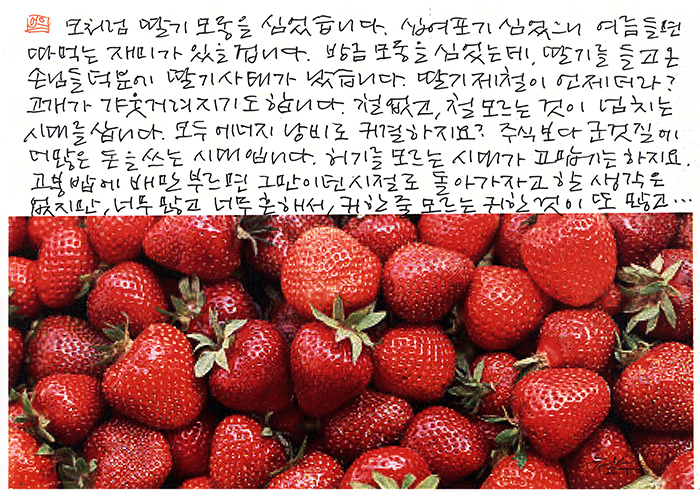 모처럼 딸기 모종을 심었습니다. 십여포기 심었으니 여름들면
따먹는 재미가 있을겁니다. 방금 모종을 심었는데, 딸기를 들고 온
손님들 덕분에 딸기사태가 났습니다. 딸기제철이 언제더라?
고개가 갸웃거려지기도 합니다. 철없고, 철모르는 것이 넘치는
시대를 삽니다. 모두 에너지 낭비로 귀결하지요? 주식보다 군것질에
더많은 돈을 쓰는 시대입니다. 허기를 모르는 시대가 고맙기는 하지요.
고봉밥에 배만 부르면 그만이던 시절로 돌아가자고 할 생각은
없지만, 너무 많고 너무 흔해서, 귀한 줄 모르는 귀한 것이 또 많고…